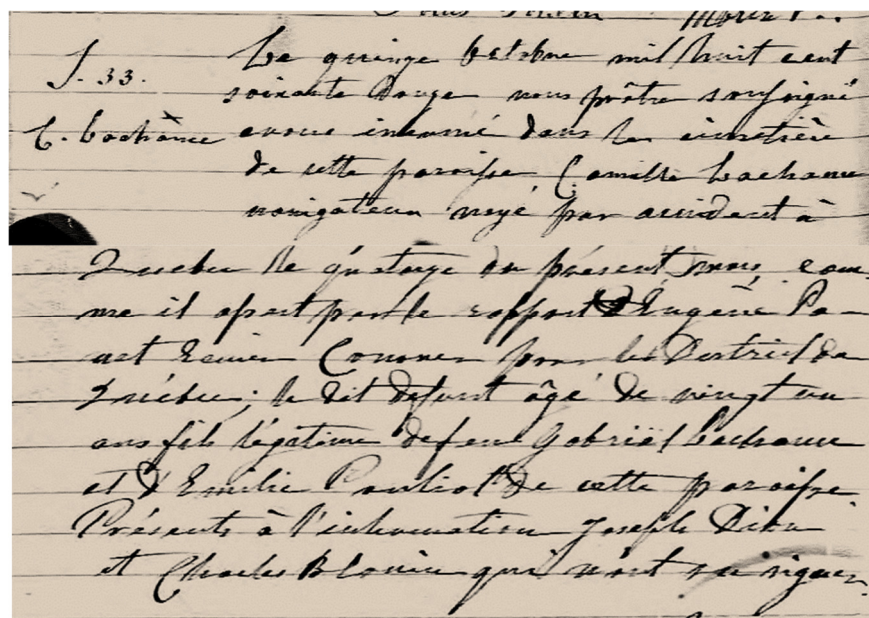 S. 33.
C. Lachance
Le quinze Octobre mil huit cent
soixante douze nous prêtre soussigné
avons inhumé dans le cimetière
de cette paroisse Camille Lachance
navigateur noyé par accident à
Québec le quatorze du présent mois, com-
me il apert par le rapport d'Eugène Pa-
net Ecuier Coroner pour le District de
Québec; le dit défunt âgé de vingt un
ans fils légitime de feu Gabriel Lachance
et d'Emilie Pouliot de cette paroisse
Présents à l'inhumation Joseph Dion
et Charles Blouin qui n'ont su signer.